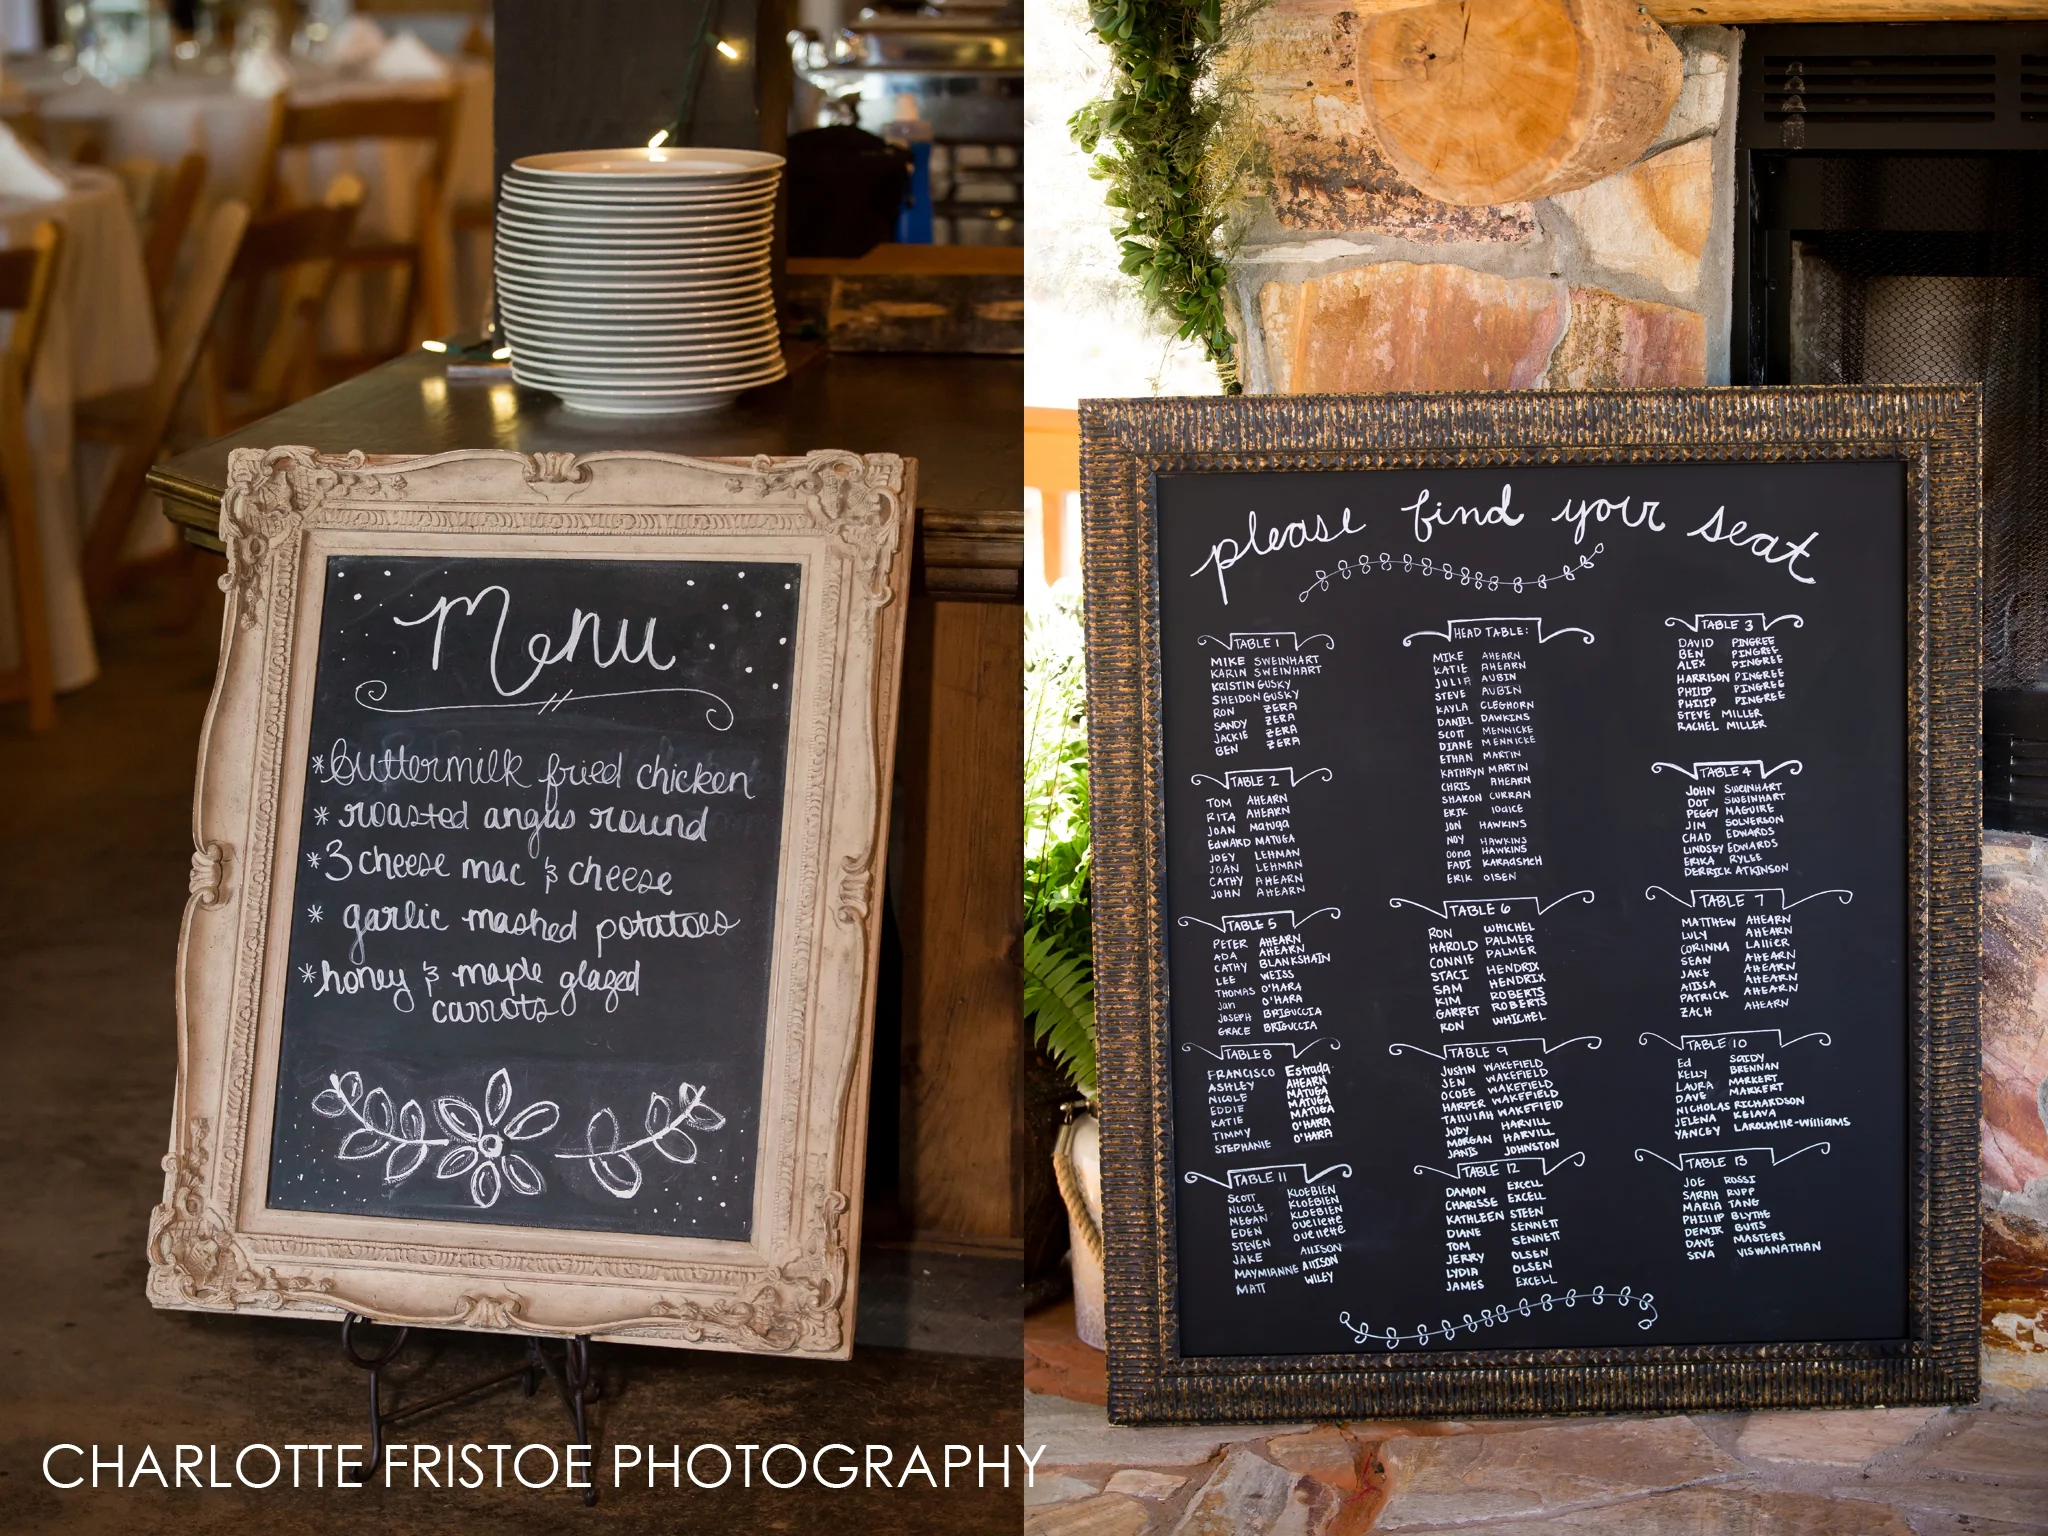 Menu
*buttermilk fried chicken
* roasted angus round
*3 cheese mac & cheese
* garlic mashed potatoes
*honey & maple glazed
carrots
please find your seat
TABLE 1
MIKE SWEINHART
KARIN SWEINHART
KRISTIN GUSKY
SHELDON GUSKY
RON ZERA
SANDY ZERA
JACKIE ZERA
BEN ZERA
HEAD TABLE:
MIKE AHEARN
KATIE AHEARN
JULIE AUBIN
STEVE AUBIN
KAYLA CLEGHORN
DANIEL DAWKINS
SCOTT MENNICKE
DIANE MENNICKE
ETHAN MARTIN
KATHRYN MARTIN
CHRIS AHEARN
SHARON CURRAN
ERIK IODICE
JON HAWKINS
NOY HAWKINS
OONA HAWKINS
FADI KARADSHEH
ERIK OLSEN
TABLE 3
DAVID PINGREE
BEN PINGREE
ALEX PINGREE
HARRISON PINGREE
PHILIP PINGREE
PHILIP PINGREE
STEVE MILLER
RACHEL MILLER
TABLE 2
TOM AHEARN
RITA AHEARN
JOAN MATUGA
EDWARD MATUGA
JOEY LEHMAN
JOAN LEHMAN
CATHY AHEARN
JOHN AHEARN
TABLE 4
JOHN SWEINHART
DOT SWEINHART
PEGGY MAGUIRE
JIM SOLVERSON
CHAD EDWARDS
LINDSEY EDWARDS
ERIKA RYLEE
DERRICK ATKINSON
TABLE 5
PETER AHEARN
ADA AHEARN
CATHY BLANKSHAIN
LEE WEISS
THOMAS O'HARA
JAN O'HARA
JOSEPH BRIGUCCIA
GRACE BRIGUCCIA
TABLE 6
RON WHICHEL
HAROLD PALMER
CONNIE PALMER
STACI HENDRIX
SAM HENDRIX
KIM ROBERTS
GARRET ROBERTS
RON WHICHEL
TABLE 7
MATTHEW AHEARN
LULY AHEARN
CORINNA LALLIER
SEAN AHEARN
JAKE AHEARN
ALISSA AHEARN
PATRICK AHEARN
ZACH AHEARN
TABLE 8
FRANCISCO Estrada
ASHLEY AHEARN
NICOLE MATUGA
EDDIE MATUGA
KATIE O'HARA
TIMMY O'HARA
STEPHANIE
TABLE 9
JUSTIN WAKEFIELD
JEN WAKEFIELD
OCOEE WAKEFIELD
HARPER WAKEFIELD
TALULAH WAKEFIELD
JUDY HARVILL
MORGAN HARVILL
JANIS JOHNSTON
TABLE 10
ED SAIDY
KELLY BRENNAN
LAURA MARKERT
DAVE MARKERT
NICHOLAS RICHARDSON
JELENA KELAVA
YANCEY LAROCHELLE-WILLIAMS
TABLE 11
SCOTT KLOEBIEN
NICOLE KLOEBIEN
MEGAN KLOEBIEN
EDEN OUELLETTE
STEVEN OUELLETTE
JAKE ALLISON
MAYMIANNE ALLISON
MATT WILEY
TABLE 12
DAMON EXCELL
CHARISSE EXCELL
KATHLEEN STEEN
DIANE SENNETT
TOM SENNETT
JERRY OLSEN
LYDIA OLSEN
JAMES EXCELL
TABLE 13
JOE ROSSI
SARAH RUPP
MARIA TANG
PHILIP BLYTHE
DEMIR BUTS
DAVE MASTERS
SIVA VISWANATHAN
CHARLOTTE FRISTOE PHOTOGRAPHY